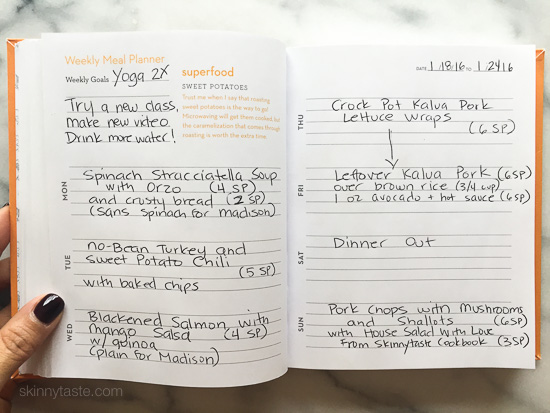 Weekly Meal Planner
Weekly Goals Yoga 2X
Try a new class,
make new video
Drink more water!
superfood
SWEET POTATOES
Trust me when I say that roasting
sweet potatoes is the way to go!
Microwaving will get them cooked, but
the caramelization that comes through
roasting is worth the extra time.
MON
Spinach Stracciatella Soup
with Orzo (4 SP)
and crusty bread (2 SP)
(sans spinach for madison)
TUE
no-Bean Turkey and
Sweet Potato Chili
(5 SP)
with baked chips
WED
Blackened Salmon with
mango Salsa (4 SP)
w/ quinoa
(plain for Madison)
skinnytaste.com
DATE 1/18/16 TO 1/24/16
THU
Crock Pot Kalua Pork
Lettuce Wraps
(6 SP)
FRI
Leftover Kalua Pork (6SP)
over brown rice (3/4 cup)
1 oz avocado + hot sauce (6 SP)
SAT
Dinner Out
SUN
Pork Chops with Mushrooms
and Shallots (6SP)
with House Salad With Love
From Skinnytaste Cookbook (3SP)